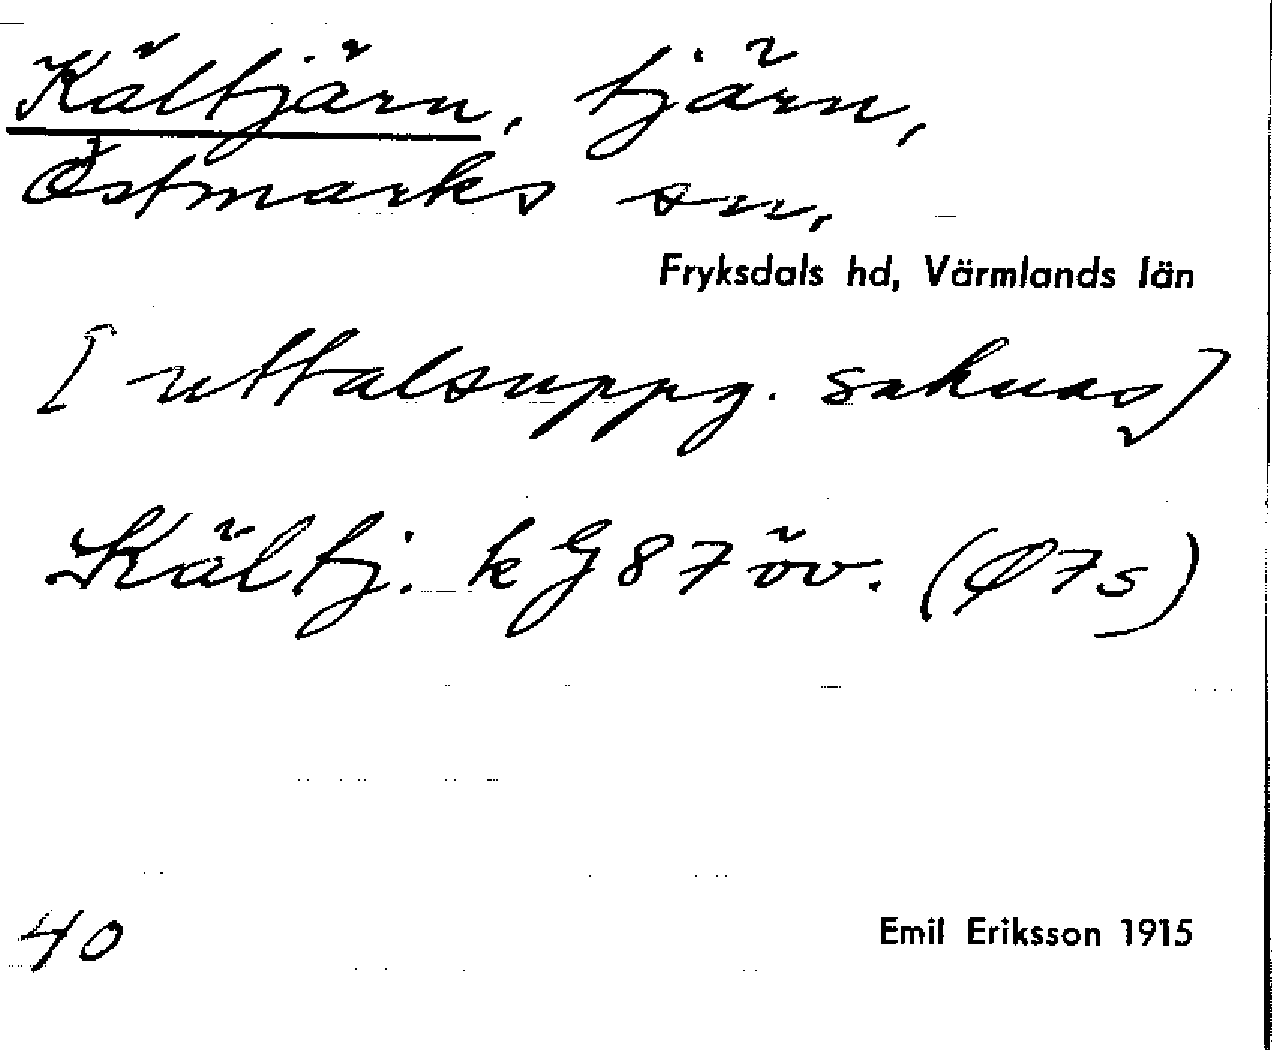 Kältjärn, tjärn,
Östmarks sn,
Fryksdals hd, Värmlands län
[uttalsuppg. saknas]
Kältj. kG87öv. (Ø7s)
40
Emil Eriksson 1915